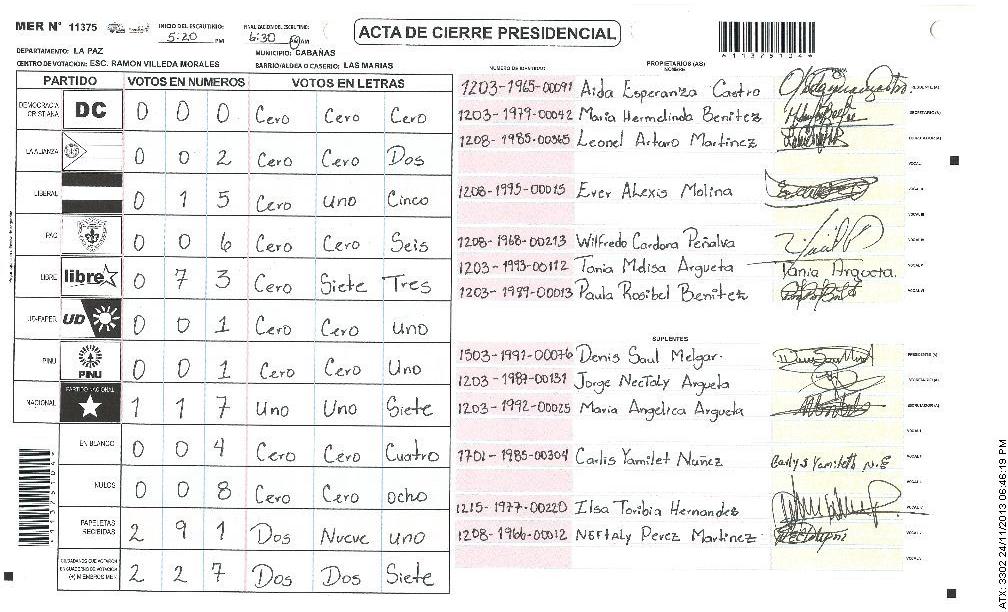 MER N° 11375
INICIO DEL ESCRUTINIO: 5:20 PM
FINALIZACION DEL ESCRUTINIO: 6:30 PM
ACTA DE CIERRE PRESIDENCIAL
A113751304A
DEPARTAMENTO: LA PAZ
MUNICIPIO: CABAÑAS
CENTRO DE VOTACION: ESC. RAMON VILLEDA MORALES
BARRIO/ALDEA O CASERIO: LAS MARIAS
PARTIDO VOTOS EN NUMEROS VOTOS EN LETRAS
DEMOCRACIA CRISTIANA DC 0 0 0 Cero Cero Cero
LA ALIANZA 0 0 2 Cero Cero Dos
LIBERAL 0 1 5 Cero Uno Cinco
PAC 0 0 6 Cero Cero Seis
LIBRE libre 0 7 3 Cero Siete Tres
UD-FAPER UD 0 0 1 Cero Cero Uno
PINU PINU 0 0 1 Cero Cero Uno
NACIONAL PARTIDO NACIONAL 1 1 7 Uno Uno Siete
EN BLANCO 0 0 4 Cero Cero Cuatro
NULOS 0 0 8 Cero Cero ocho
PAPELETAS RECIBIDAS 2 9 1 Dos Nueve uno
CIUDADANOS QUE VOTARON EN CUADERNO DE VOTACION (+) MIEMBROS MER 2 2 7 Dos Dos Siete
NUMERO DE IDENTIDAD
PROPIETARIOS (AS)
NOMBRE
FIRMA
1203-1965-00091 Aida Esperanza Castro
1203-1979-00042 Maria Hermelinda Benitez SECRETARIO (A)
1208-1985-00365 Leonel Arturo Martinez
VOCAL I
1208-1995-00015 Ever Alexis Molina VOCAL II
VOCAL III
1208-1968-00213 Wilfredo Cardona Peñalva VOCAL IV
1203-1993-00112 Tania Melisa Argueta Tania Argueta. VOCAL V
1203-1989-00013 Paula Rosibel Benitez VOCAL VI
SUPLENTES
1503-1991-00076 Denis Saul Melgar. PRESIDENTE (A)
1203-1987-00131 Jorge Nectaly Argueta SECRETARIO (A)
1203-1992-00025 Maria Angelica Argueta ESCRUTADOR (A)
VOCAL I
1701-1985-00304 Carlis Yamilet Nuñez
1215-1977-00220 Ilsa Toribia Hernandez
1208-1966-00012 Neftaly Perez Martinez
ATX: 3302 24/11/2013 06:46:19 PM